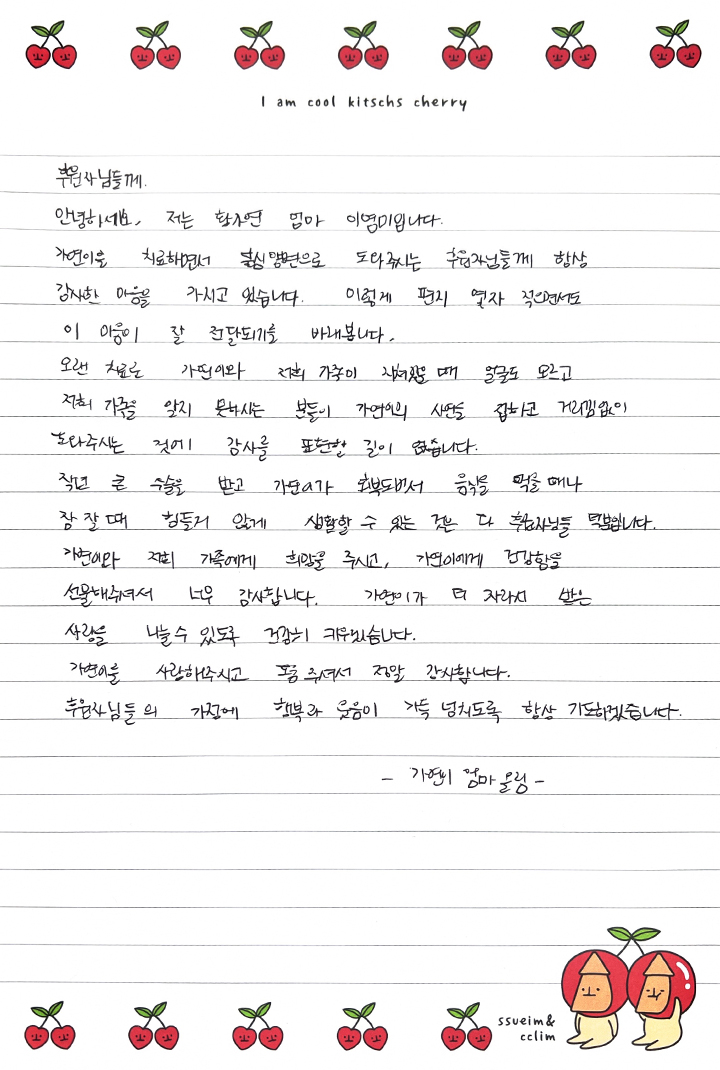 I am cool kitschs cherry
후원자님들께.
안녕하세요, 저는 황가연 엄마 이영미입니다.
가연이를 치료하면서 물심양면으로 도와주시는 후원자님들께 항상
감사한 마음을 가지고 있습니다. 이렇게 편지 몇자 적으면서도
이 마음이 잘 전달되기를 바래봅니다.
오랜 치료로 가연이와 저희 가족이 지쳐있을 때 얼굴도 모르고
저희 가족을 알지 못하시는 분들이 가연이의 사연을 접하고 거리낌없이
도와주시는 것에 감사를 표현할 길이 없습니다.
작년 큰 수술을 받고 가연이가 회복되면서 음식을 먹을 때나
잠 잘 때 힘들지 않게 생활할 수 있는 것은 다 후원자님들 덕분입니다.
가연이와 저희 가족에게 희망을 주시고, 가연이에게 건강함을
선물해주셔서 너무 감사합니다. 가연이가 더 자라서 받은
사랑을 나눌 수 있도록 건강히 키우겠습니다.
가연이를 사랑해주시고 도움 주셔서 정말 감사합니다.
후원자님들의 가정에 행복과 웃음이 가득 넘치도록 항상 기도하겠습니다.
- 가연이 엄마 올림 -
ssueim&
cclim